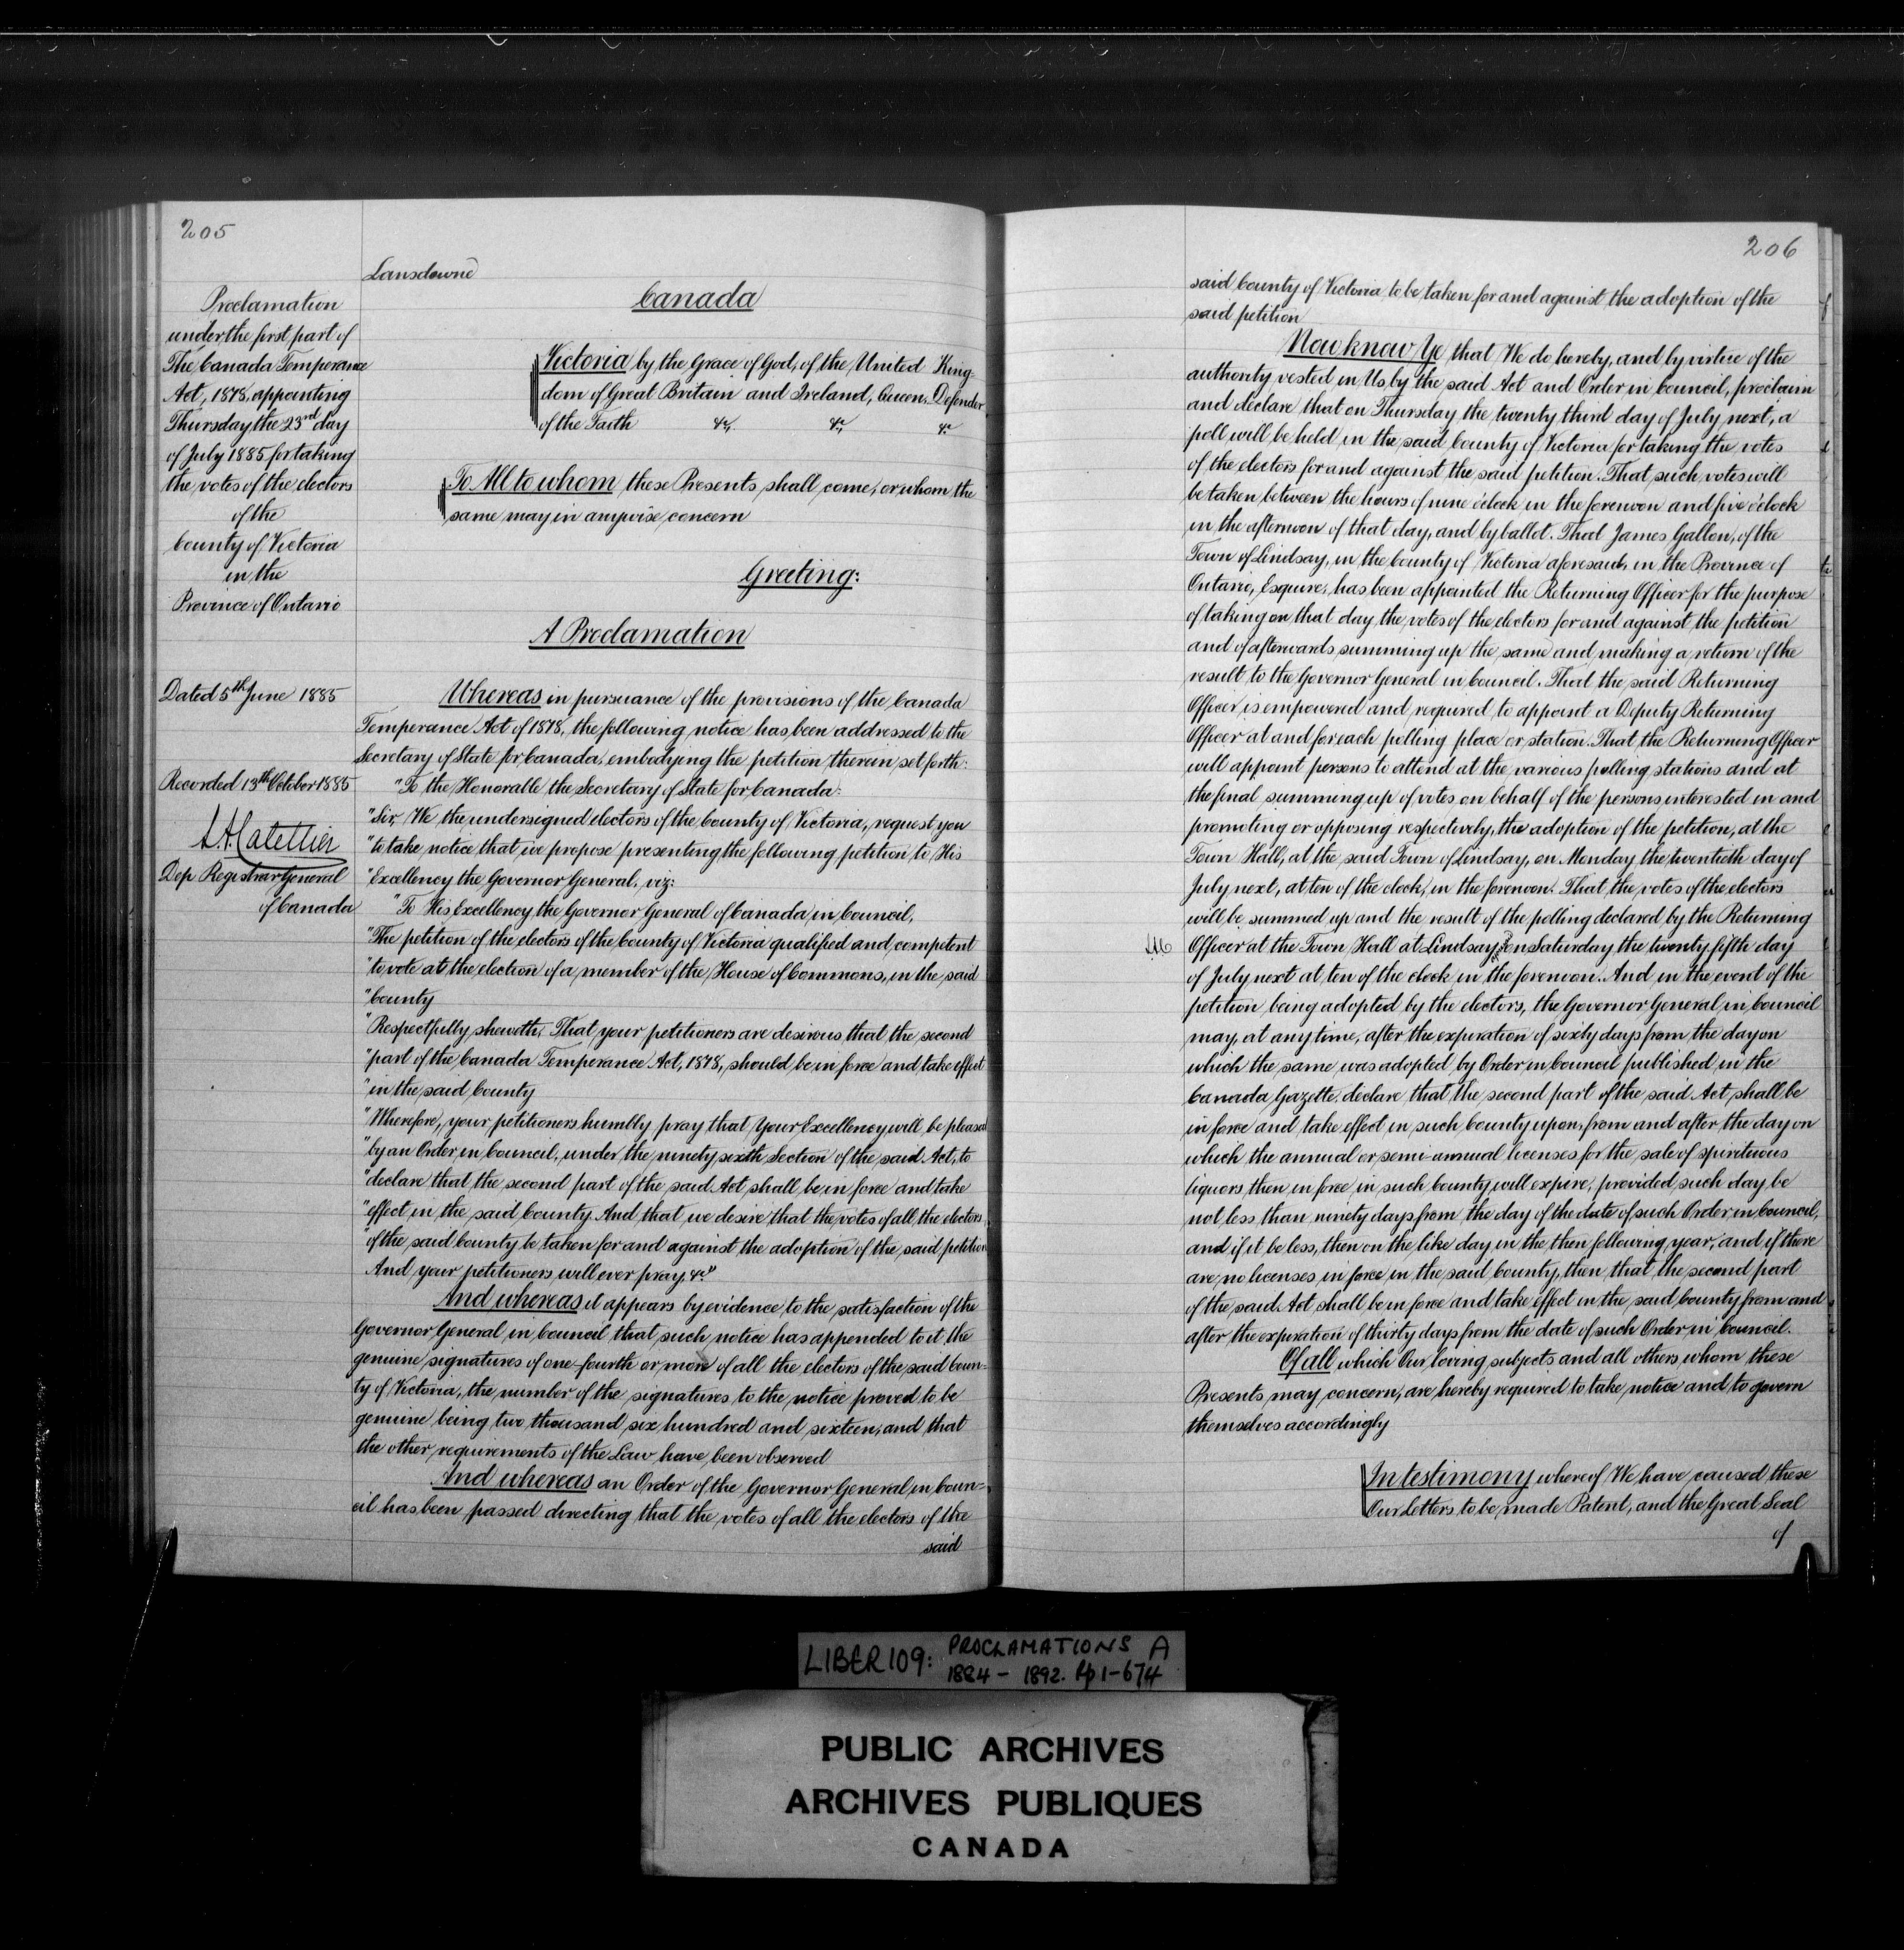 205
Lansdowne
Canada
Proclamation
under the first part of
The Canada Temperance
Act, 1878, appointing
Thursday the 23rd day
of July 1885 for taking
the votes of the electors
of the
County of Victoria
in the
Province of Ontario
Dated 5th June 1885
Recorded 13th October 1885
Dep Registrar General
of Canada
Victoria by the Grace of God, of the United King-
dom of Great Britain and Ireland, Queen, Defender
of the Faith &c, &c, &c
To All to whom these Presents shall come, or whom the
same may in anywise concern
Greeting:
A Proclamation
Whereas in pursuance of the provisions of the Canada
Temperance Act of 1878, the following notice has been addressed to the
Secretary of State for Canada, embodying the petition therein set forth:
"To the Honorable the Secretary of State for Canada:
"Sir, We the undersigned electors of the County of Victoria, request you
"to take notice that we propose presenting the following petition to His
"Excellency the Governor General, viz:
"To His Excellency the Governor General of Canada in Council,
"The petition of the electors of the County of Victoria qualified and competent
"to vote at the election of a member of the House of Commons, in the said
"County
"Respectfully sheweth, That your petitioners are desirous that the second
"part of the Canada Temperance Act, 1878, should be in force and take effect
"in the said County
"Wherefore, your petitioners humbly pray that Your Excellency will be pleased
"by an Order in Council, under the ninety sixth Section of the said Act, to
"declare that the second part of the said Act shall be in force and take
"effect in the said County. And that we desire that the votes of all the electors
"of the said County be taken for and against the adoption of the said petition
And your petitioners will ever pray &c"
And whereas it appears by evidence to the satisfaction of the
Governor General in Council that such notice has appended to it the
genuine signatures of one fourth or more of all the electors of the said Coun-
ty of Victoria, the number of the signatures to the notice proved to be
genuine being two thousand six hundred and sixteen, and that
the other requirements of the Law have been observed
And whereas an Order of the Governor General in Coun-
cil has been passed directing that the votes of all the electors of the
said
206
said County of Victoria to be taken for and against the adoption of the
said petition
Now know Ye that We do hereby, and by virtue of the
authority vested in Us by the said Act and Order in Council, proclaim
and declare that on Thursday the twenty third day of July next, a
poll will be held in the said County of Victoria for taking the votes
of the electors for and against the said petition. That such votes will
be taken between the hours of nine o'clock in the forenoon and five o'clock
in the afternoon of that day, and by ballot. That James Gallon, of the
Town of Lindsay, in the County of Victoria aforesaid, in the Province of
Ontario, Esquire, has been appointed the Returning Officer for the purpose
of taking on that day the votes of the electors for and against the petition
and of afterwards summing up the same and making a return of the
result to the Governor General in Council. That the said Returning
Officer is empowered and required to appoint a Deputy Returning
Officer at and for each polling place or station. That the Returning Officer
will appoint persons to attend at the various polling stations and at
the final summing up of votes on behalf of the persons interested in and
promoting or opposing respectively, the adoption of the petition, at the
Town Hall, at the said Town of Lindsay, on Monday the twentieth day of
July next, at ten of the clock, in the forenoon. That the votes of the electors
will be summed up and the result of the polling declared by the Returning
Officer at the Town Hall at Lindsay, on Saturday the twenty fifth day
of July next at ten of the clock in the forenoon. And in the event of the
petition being adopted by the electors, the Governor General in Council
may, at any time, after the expiration of sixty days from the day on
which the same was adopted by Order in Council published in the
Canada Gazette, declare that the second part of the said Act shall be
in force and take effect in such County upon, from and after the day on
which the annual or semi-annual licenses for the sale of spirituous
liquors then in force in such County will expire, provided such day be
not less than ninety days from the day of the date of such Order in Council,
and if it be less, then on the like day in the then following year, and if there
are no licenses in force in the said County, then that the second part
of the said Act shall be in force and take effect in the said County from and
after the expiration of thirty days from the date of such Order in Council.
Of all which Our loving subjects and all others whom these
Presents may concern, are hereby required to take notice and to govern
themselves accordingly
In testimony whereof We have caused these
Our Letters to be made Patent, and the Great Seal
of
LIBER 109: PROCLAMATIONS A
1884 - 1892. Pp 1-674
PUBLIC ARCHIVES
ARCHIVES PUBLIQUES
CANADA